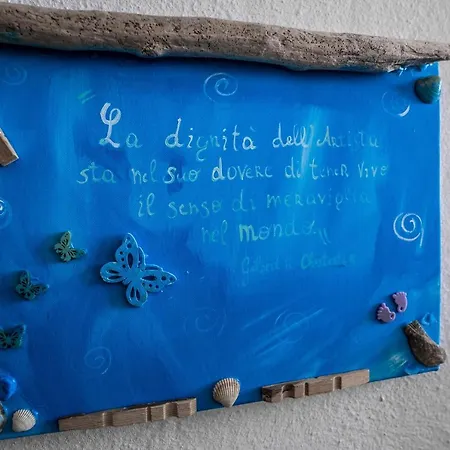 La dignità dell'Artista
sta nel suo dovere di tener vivo
il senso di meraviglia
nel mondo,,
Gilbert K. Chesterton